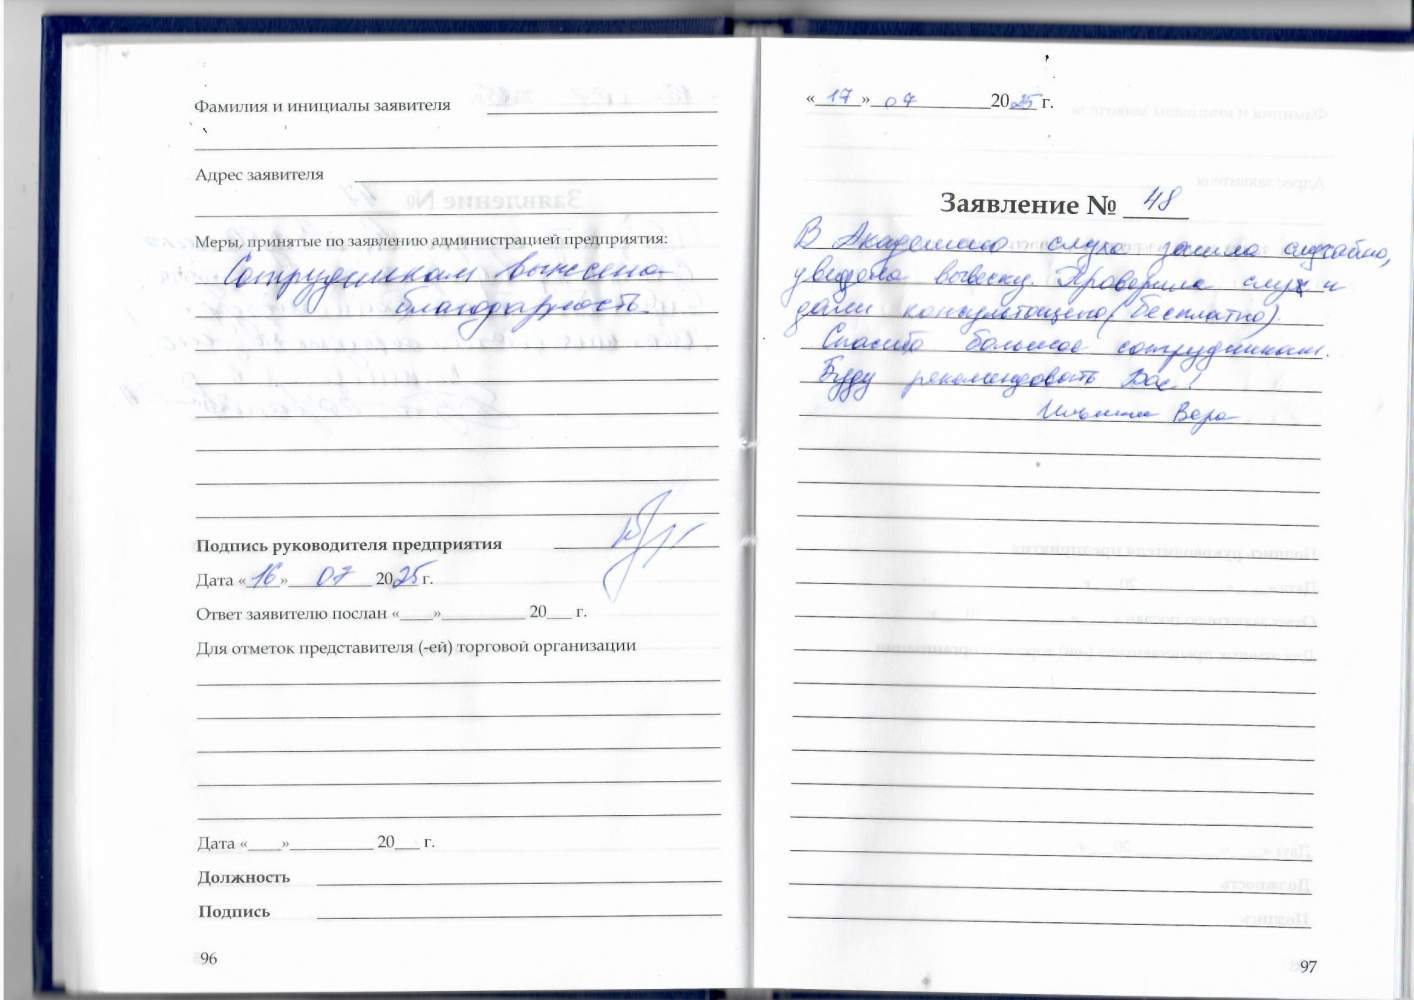 Фамилия и инициалы заявителя
Адрес заявителя
Меры, принятые по заявлению администрацией предприятия:
Сотрудникам вынесена
благодарность.
Подпись руководителя предприятия
Дата «16» 07 2025 г.
Ответ заявителю послан «____»__________ 20___ г.
Для отметок представителя (-ей) торговой организации
Дата «____»__________ 20___ г.
Должность
Подпись
96
«17» 07 2025 г.
Заявление № 48
В Академию слуха зашла случайно,
увидела вывеску. Проверила слух и
дали консультацию (бесплатно).
Спасибо большое сотрудникам.
Буду рекомендовать Вас!
Ильина Вера
97